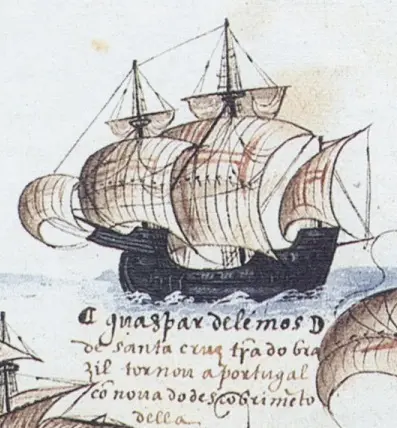 ₡ guaspar de lemos D
de santa cruz trã do bra
zil tornou a portugal
cõ nova do descobrimẽto
della